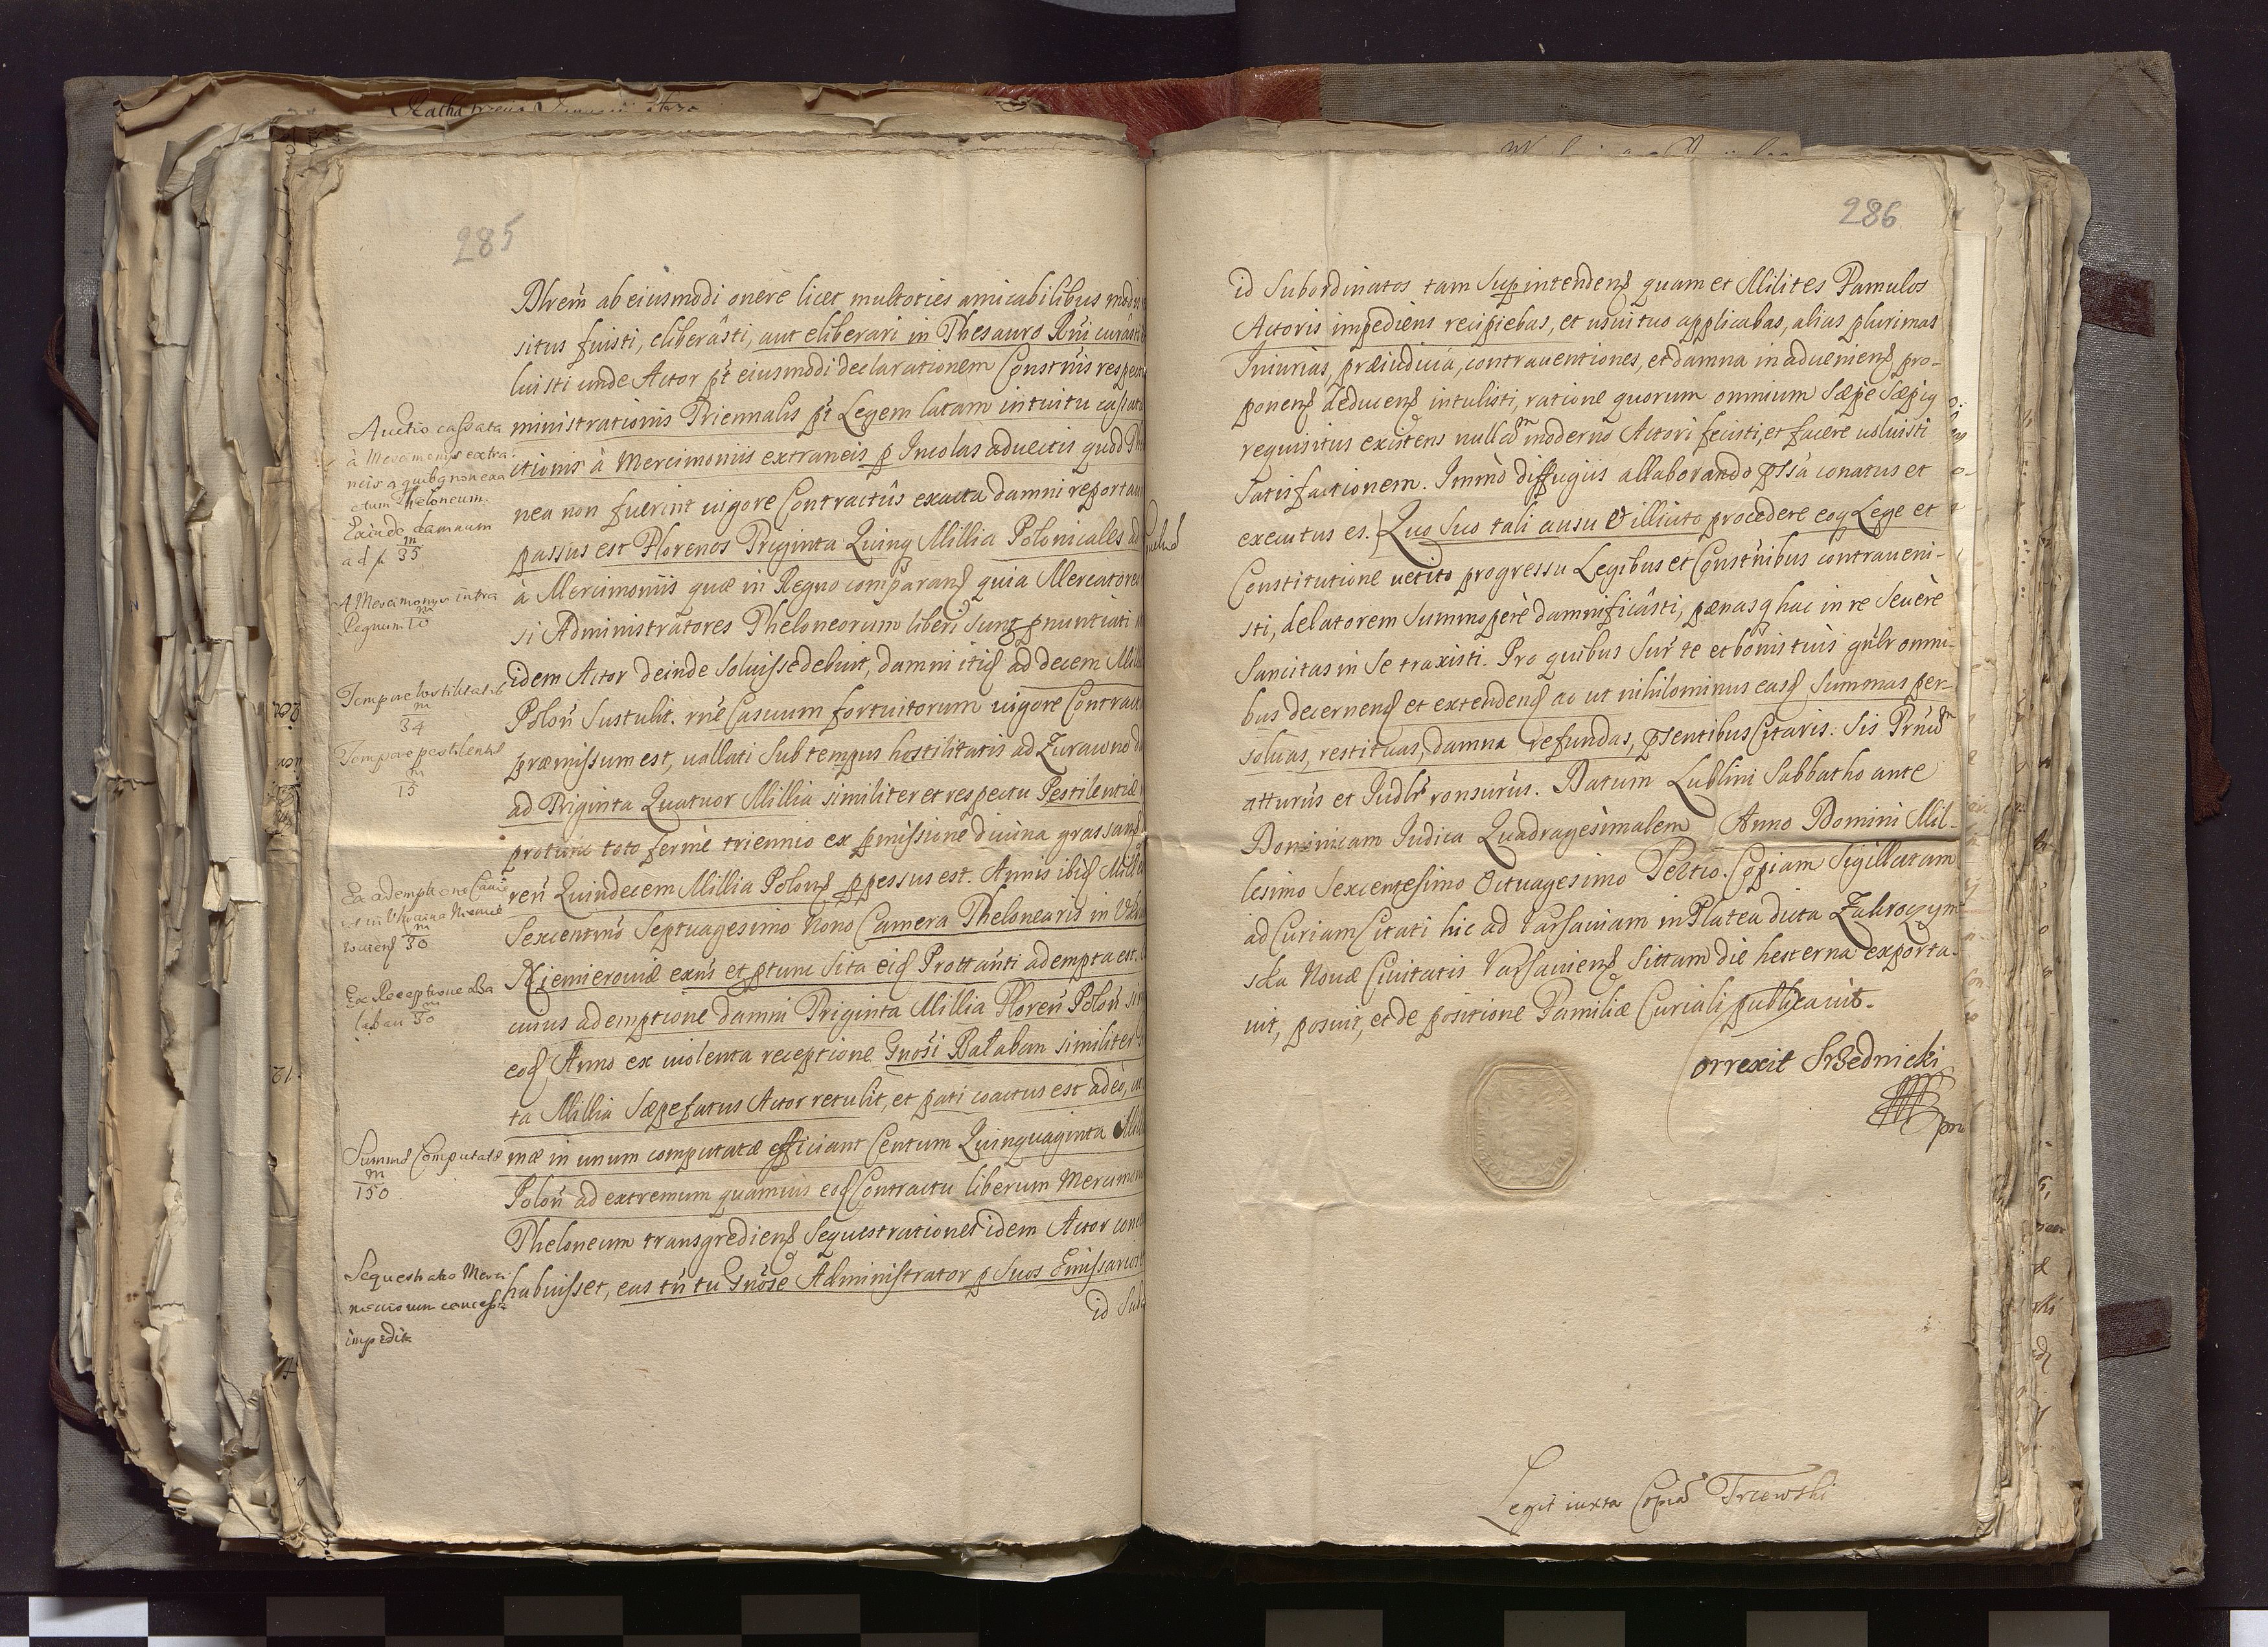 285
Actorem ab eiusmodi onere licet multoties amicabilibus modis
situs fuisti, eliberâsti, aut eliberari in Thesauro Rñi curâsti
luisti unde Actor pt eiusmodi declarationem Constñis respectu
ministrationis Triennalis pt Legem latam intuitu cassatæ
ctionis à Mercimoniis extraneis p Incolas advectis quod
nea non fuerint vigore Contractûs exacta damni
passus est Florenos Triginta Quinq Millia Polonicales ad
à Mercimoniis quæ in Regno comparand quia Mercatores
si Administratores Theloneorum liberi sunt pnuntiati
idem Actor deinde soluisse debuit, damni itid ad decem Mill
Poloñ sustulit. rñe Casuum fortuitorum vigore Contract
præmissum est, vallati sub tempus hostilitatis ad Zurawno
ad Triginta Quatuor Millia similiter et respectu Pestilentiæ
protunc toto fermè triennio ex pmissione divina grassand
reñ Quindecem Millia Polond ppessus est. Annis ibid Mill
Sexcentmo Septuagesimo Nono Camera Thelonearis in
Niemieroviæ exñs et ptunc sita eid Prottanti adempta est
cuius ademptione damni Triginta Millia Floreñ Poloñ
eod Anno ex violenta receptione Gnosi Bałaban similiter
ta Millia Sæpefatus Actor retulit, et pati coactus est adeò, ut
mæ in unum computatæ efficiant Centum Quinquaginta Mill
Poloñ ad extremum quamvis eod Contractu liberum
Theloneum transgrediend Sequestrationes idem Actor
habuisset, eas tñ tu Gnose Administrator p suos Emissarios
id Sub
Auctio cassata
à Mercimonys extra
neis a quibq non exa
ctum Theloneum.
Exinde damnum
ad fl 35 m
A Mercimonys intra
Regnum 10 m
Tempore hostilitatis
m
34
Tempore pestilentiæ
m
15
Ex ademptione Came
ræ in Ukraina Niemie
roviens 30 m
Ex Receptione Ba
laban 30 m
Summæ Computatæ
m
150
Sequestratio Merci
moniorum concessa
impedita
286
id Subordinatos tam Supintendend quam et Milites Famulos
Actoris impediens recipiebas, et usui tuo applicabas, alias plurimas
Iniurias, præiudicia, contraventiones, et damna in adveniend pro-
ponend deducend intulisti, ratione quorum omnium Sæpe Sæpig
requisitus existens nullam moderno Actori fecisti, et facere voluisti
Satisfactionem. Immò diffugiis allaborando pssa conatus et
executus es. Quo suo tali ausu & illicito procedere eoq Lege et
Constitutione vetito progressu Legibus et Constñibus contraveni-
sti, delatorem summopere damnificâsti, pænasq hac in re Sevèrè
Sancitas in se traxisti. Pro quibus Sur te et bonis tuis gnlr omni-
bus decernend et extendend ac ut nihilominus easd Summas per-
soluas, restituas, damna refundas, psentibus Citaris. Sis
atturus et Iudlr ronsurus. Datum Lublini Sabbatho ante
Dominicam Iudica Quadragesimalem Anno Domini Mil-
lesimo Sexcentesimo Octuagesimo Tertio. Copiam Sigillatam
ad Curiam Citati hic ad Varsaviam in Platea dicta Zakroczym
ska Novæ Civitatis Varsaviend sittam die hesterna exporta-
vit, posuit, et de positione Familiæ Curiali publicavit.
orrexit Srzednicki
Legit iuxta Copia Trzewski